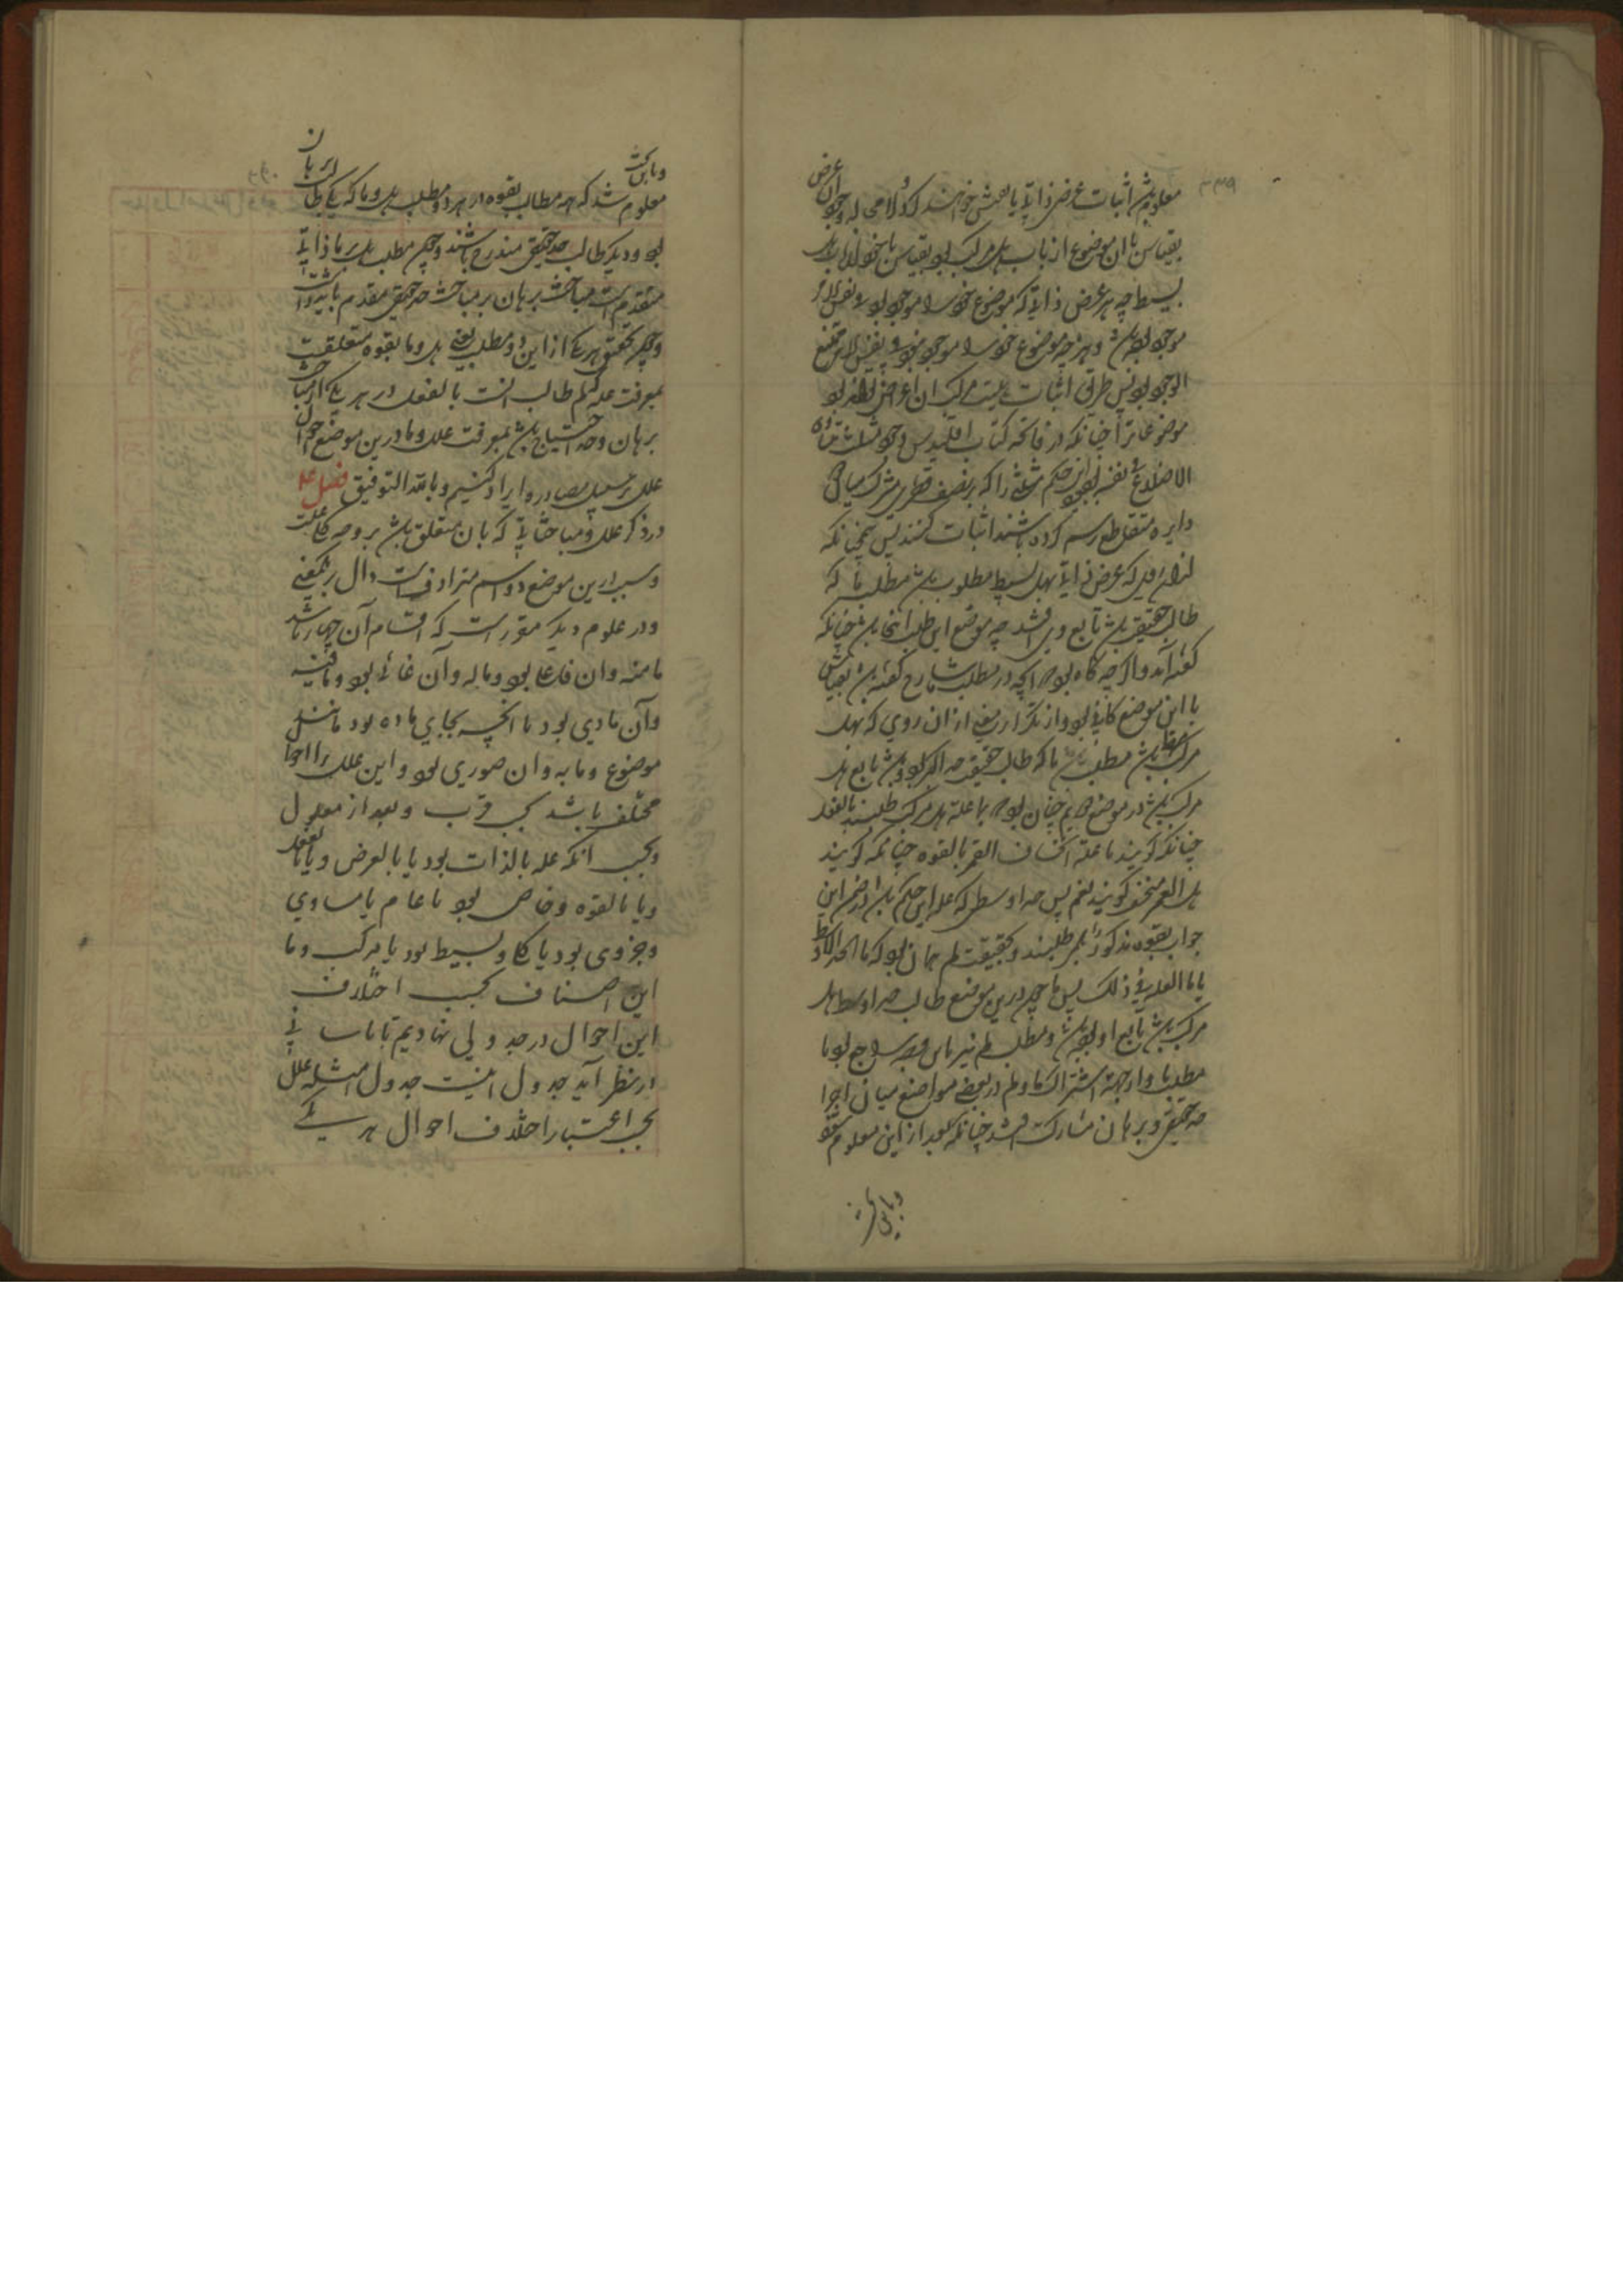 ٣٣٩
معلوم باشد اثبات عرض ذاتی یا بعینش خواهند کرد
بقیاس با آن موضوع از باب هل مرکب بود و بقیاس با خود از باب هل
بسیط چه هر عرض ذاتی که موضوع خود را موجود بود در نفس الامر
موجود بود و هر چه موضوع خود را موجود نبود در نفس الامر ممتنع
الوجود بود پس طریق اثبات هلیت مرکب آن اعراض بود
موضوعاتش را چنانکه در فاتحه کتاب اقلیدس وجود مثلث متساوی
الاضلاع
دایره متقاطع رسم کرده باشند اثبات کنند پس همچنانکه
عرض ذاتی بهل بسیط مطلوب باشد مطلب ما که
طالب حقیقت باشد تابع وی افتد چه موضع این طلب آنجا باشد چنانکه
گفته آمد و اگر چه گاه بود که آنچه در مطلب ما شارح گفته باشند بقیاس
با این موضع کافی بود و از تکرار مغنی از آن روی که بهل
مرکب باشد مطلب ما که طالب حقیقت حد اکبر بود هم تابع هل
مرکب باشد و در موضع دیگر چنان بود که با علت هل مرکب طلبند بالفعل
چنانکه گویند ما علة انکساف القمر یا بالقوه چنانکه گویند
هل القمر منخسف گویند نعم پس حد اوسط را که علت این حکم باشد و در ضمن این
جواب بقوه مذکور بلم طلبند و بحقیقت لم همان بود که ما الحد الاوسط
یا ما العلة فی ذلک پس ما چون درین موضع طالب حد اوسط هل
مرکب باشد تابع او بود و مطلب لم نیز باین وجه راجع بود با
مطلب ما و از جهت اشتراک ما و لم در بعضی مواضع میان اجزا
حد حقیقی و برهان مشارکت افتد چنانکه بعد از این معلوم شود
و باین
معلوم شد که همه مطالب بقوه در هر دو مطلب هل و ما که یکی طالب برهان
بود و دیگر طالب حد حقیقی مندرج باشند و چون مطلب هل بر ما ذاتی
متقدم است مباحث برهان بر مباحث حد حقیقی مقدم باید داشت
و چون تحقیق هر یکی از این دو مطلب یعنی هل و ما بقوه متعلقست
بمعرفت علت که لم طالب آنست بالفعل و در هر یکی از مباحث
برهان و حد احتیاج باشد بمعرفت علل و ما درین موضع احوال
علل بر سبیل مصادره ایراد کنیم و بالله التوفیق فصل
در ذکر علل و مباحثی که بآن متعلق باشد بر وجه کلی علت
و سبب درین موضع دو اسم مترادفست دال بر یکمعنی
و در علوم دیگر مقررست که اقسام آن چهار باشد
ما منه و آن فاعلی بود و ما له و آن غائی بود و ما فیه
و آن مادی بود یا آنچه بجای ماده بود مانند
موضوع و ما به و آن صوری بود و این علل را احوال
مختلف باشد بحسب قرب و بعد از معلول
و بحسب آنکه علت بالذات بود یا بالعرض و یا بالفعل
و یا بالقوه و خاص بود یا عام یا مساوی
و جزوی بود یا کلی و بسیط بود یا مرکب و ما
این اصناف بحسب اختلاف
این احوال در جدولی نهادیم تا باسانی
در نظر آید جدول اینست جدول امثله علل
بحسب اعتبار اختلاف احوال هر یکی